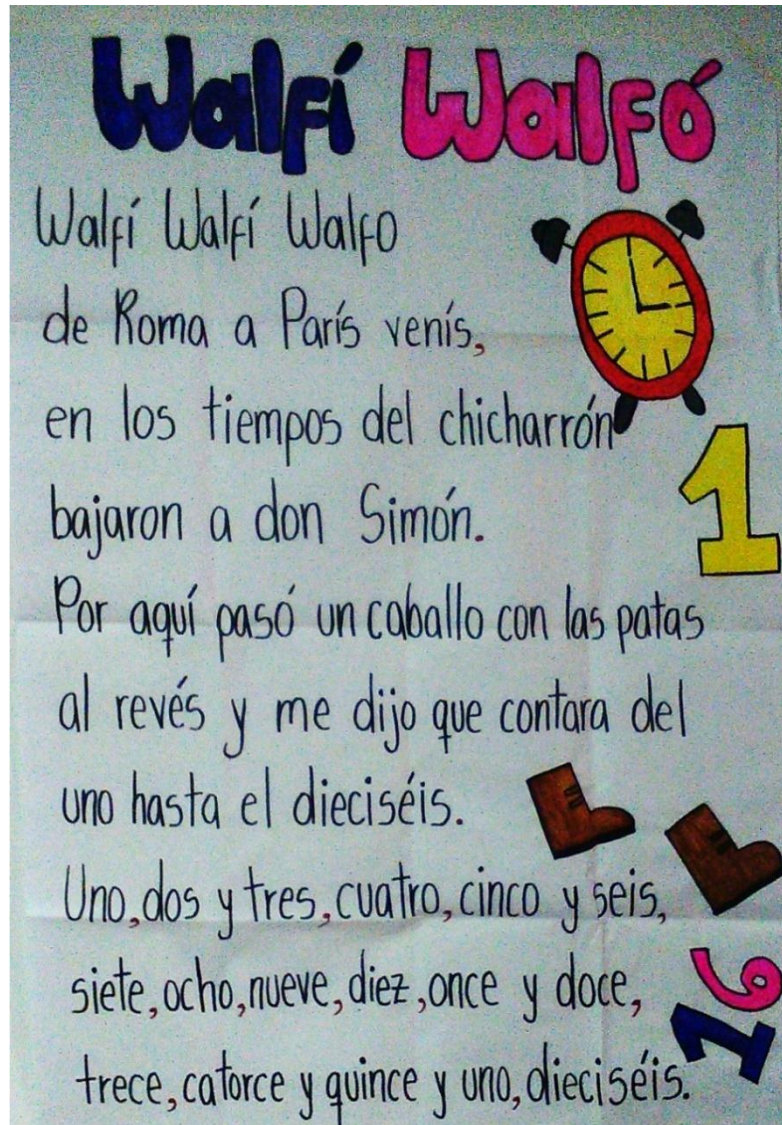 Walfí Walfó
Walfí Walfí Walfo
de Roma a París venís,
en los tiempos del chicharrón
bajaron a don Simón.
Por aquí pasó un caballo con las patas
al revés y me dijo que contara del
uno hasta el dieciséis.
Uno, dos y tres, cuatro, cinco y seis,
siete, ocho, nueve, diez, once y doce,
trece, catorce y quince y uno, dieciséis.
1
16